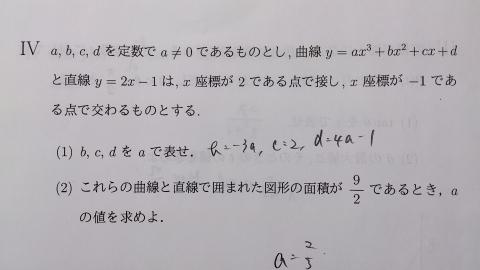 IV a, b, c, d を定数で a ≠ 0 であるものとし, 曲線 y = ax³ + bx² + cx + d
と直線 y = 2x − 1 は, x 座標が 2 である点で接し, x 座標が −1 であ
る点で交わるものとする.
(1) b, c, d を a で表せ. b=-3a, c=2, d=4a-1
(2) これらの曲線と直線で囲まれた図形の面積が 9/2 であるとき, a
の値を求めよ.
a=2/5